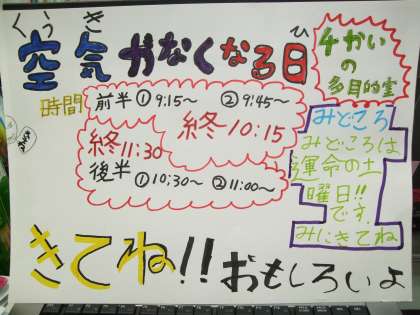 くうき
ひ
空気がなくなる日
4かい
の
多目的室
時間
前半 ①9:15〜 ②9:45〜
終10:15
終11:30
後半 ①10:30〜 ②11:00〜
みどころ
みどころは
運命の土
曜日!!
です。
みにきてね
きてね!!おもしろいよ